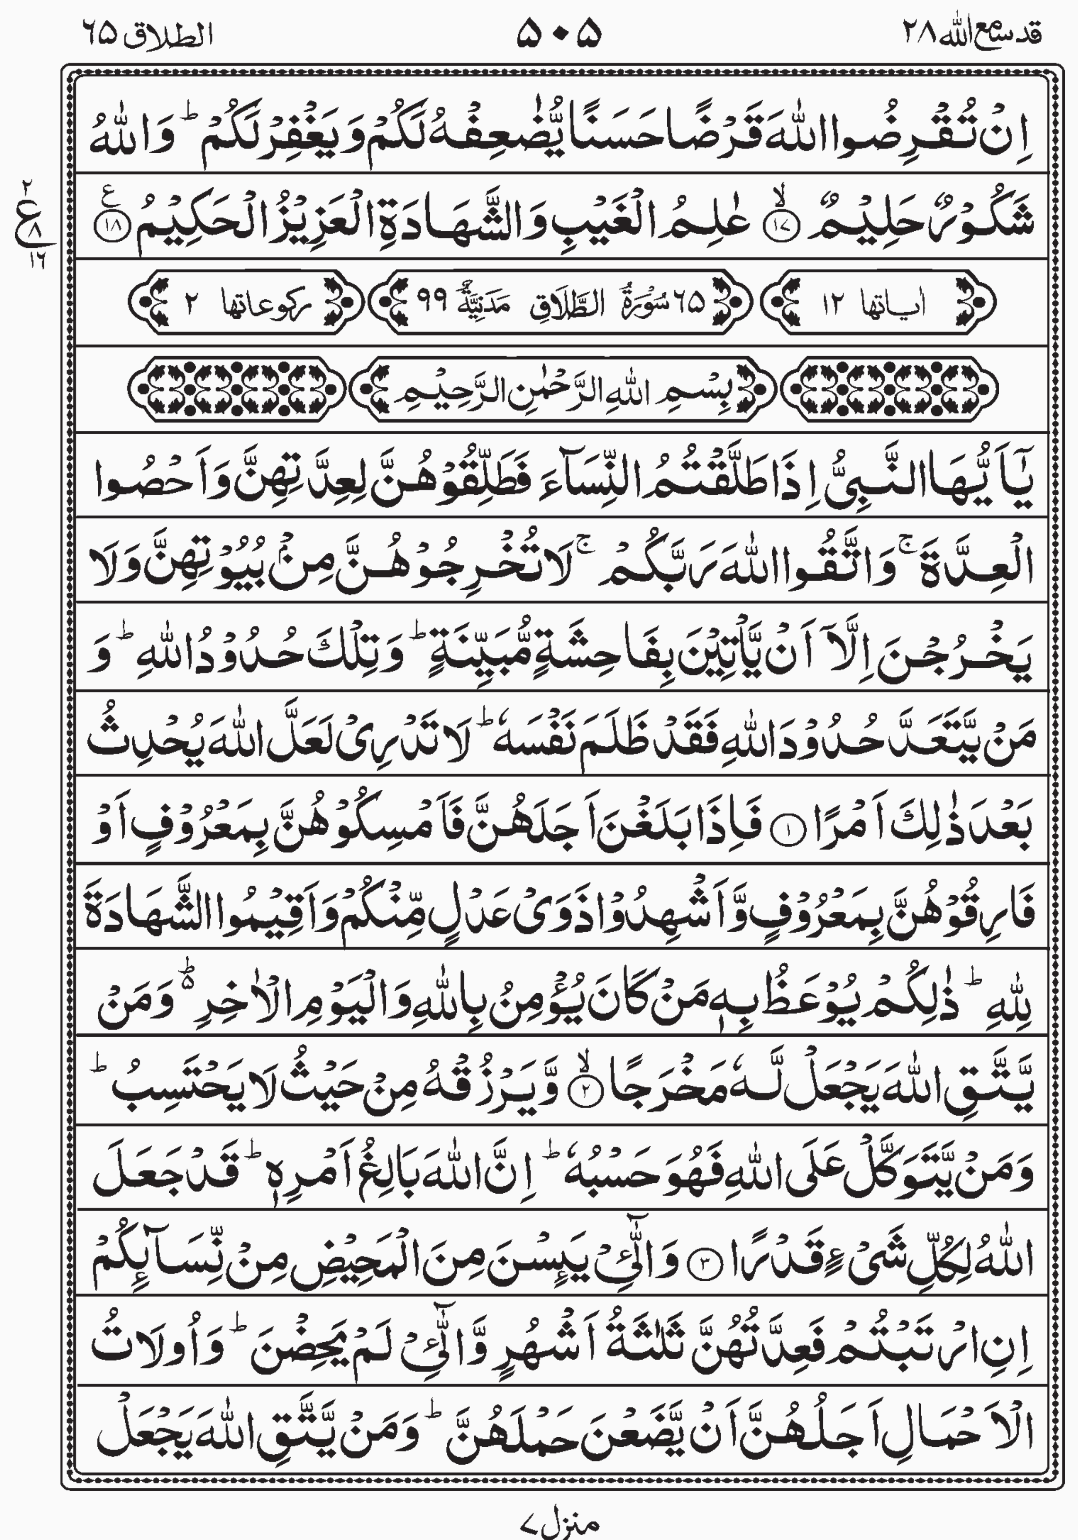 قد سمع الله ۲۸ ۵۰۵ الطلاق ۶۵
اِنْ تُقْرِضُوا اللّٰهَ قَرْضًا حَسَنًا یُّضٰعِفْهُ لَكُمْ وَ یَغْفِرْ لَكُمْ ؕ وَ اللّٰهُ
شَكُوْرٌ حَلِیْمٌ ۙ﴿۱۷﴾ عٰلِمُ الْغَیْبِ وَ الشَّهَادَةِ الْعَزِیْزُ الْحَكِیْمُ ﴿۱۸﴾ ع
۲ ع ۸ ۱۶
اٰیاتها ۱۲ ۶۵ سُوْرَةُ الطَّلَاقِ مَدَنِیَّةٌ ۹۹ ركوعاتها ۲
بِسْمِ اللّٰهِ الرَّحْمٰنِ الرَّحِیْمِ
یٰۤاَیُّهَا النَّبِیُّ اِذَا طَلَّقْتُمُ النِّسَآءَ فَطَلِّقُوْهُنَّ لِعِدَّتِهِنَّ وَ اَحْصُوا
الْعِدَّةَ ۚ وَ اتَّقُوا اللّٰهَ رَبَّكُمْ ۚ لَا تُخْرِجُوْهُنَّ مِنْۢ بُیُوْتِهِنَّ وَ لَا
یَخْرُجْنَ اِلَّاۤ اَنْ یَّاْتِیْنَ بِفَاحِشَةٍ مُّبَیِّنَةٍ ؕ وَ تِلْكَ حُدُوْدُ اللّٰهِ ؕ وَ
مَنْ یَّتَعَدَّ حُدُوْدَ اللّٰهِ فَقَدْ ظَلَمَ نَفْسَهٗ ؕ لَا تَدْرِیْ لَعَلَّ اللّٰهَ یُحْدِثُ
بَعْدَ ذٰلِكَ اَمْرًا ﴿۱﴾ فَاِذَا بَلَغْنَ اَجَلَهُنَّ فَاَمْسِكُوْهُنَّ بِمَعْرُوْفٍ اَوْ
فَارِقُوْهُنَّ بِمَعْرُوْفٍ وَّ اَشْهِدُوْا ذَوَیْ عَدْلٍ مِّنْكُمْ وَ اَقِیْمُوا الشَّهَادَةَ
لِلّٰهِ ؕ ذٰلِكُمْ یُوْعَظُ بِهٖ مَنْ كَانَ یُؤْمِنُ بِاللّٰهِ وَ الْیَوْمِ الْاٰخِرِ ۬ؕ وَ مَنْ
یَّتَّقِ اللّٰهَ یَجْعَلْ لَّهٗ مَخْرَجًا ۙ﴿۲﴾ وَّ یَرْزُقْهُ مِنْ حَیْثُ لَا یَحْتَسِبُ ؕ
وَ مَنْ یَّتَوَكَّلْ عَلَی اللّٰهِ فَهُوَ حَسْبُهٗ ؕ اِنَّ اللّٰهَ بَالِغُ اَمْرِهٖ ؕ قَدْ جَعَلَ
اللّٰهُ لِكُلِّ شَیْءٍ قَدْرًا ﴿۳﴾ وَ الّٰٓـِٔیْ یَىِٕسْنَ مِنَ الْمَحِیْضِ مِنْ نِّسَآىِٕكُمْ
اِنِ ارْتَبْتُمْ فَعِدَّتُهُنَّ ثَلٰثَةُ اَشْهُرٍ وَّ الّٰٓـِٔیْ لَمْ یَحِضْنَ ؕ وَ اُولَاتُ
الْاَحْمَالِ اَجَلُهُنَّ اَنْ یَّضَعْنَ حَمْلَهُنَّ ؕ وَ مَنْ یَّتَّقِ اللّٰهَ یَجْعَلْ
منزل ۷